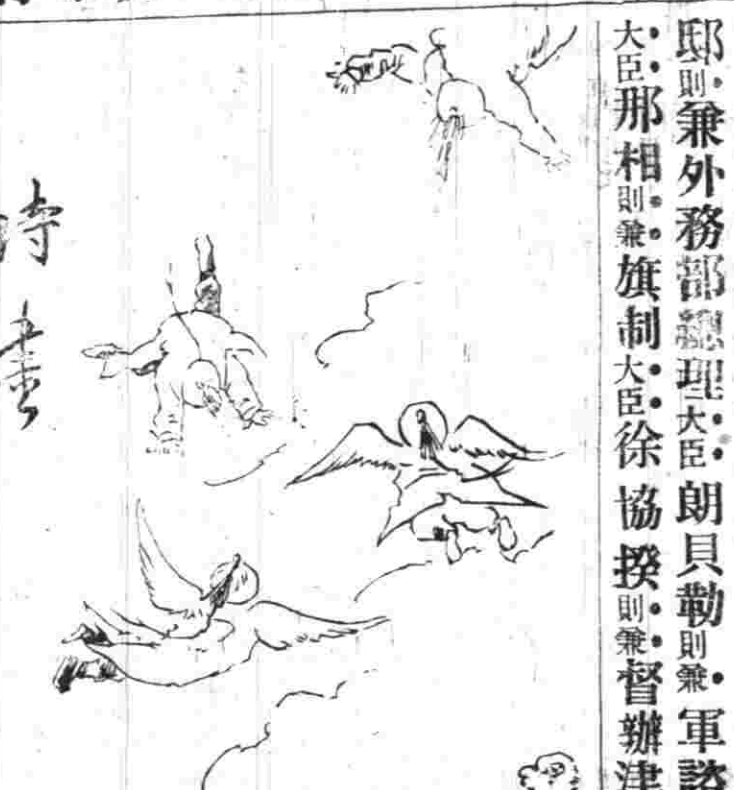 邸則兼外務部總理大臣朗貝勒則兼軍諮
大臣那相則兼旗制大臣徐協揆則兼督辦津
時
畫